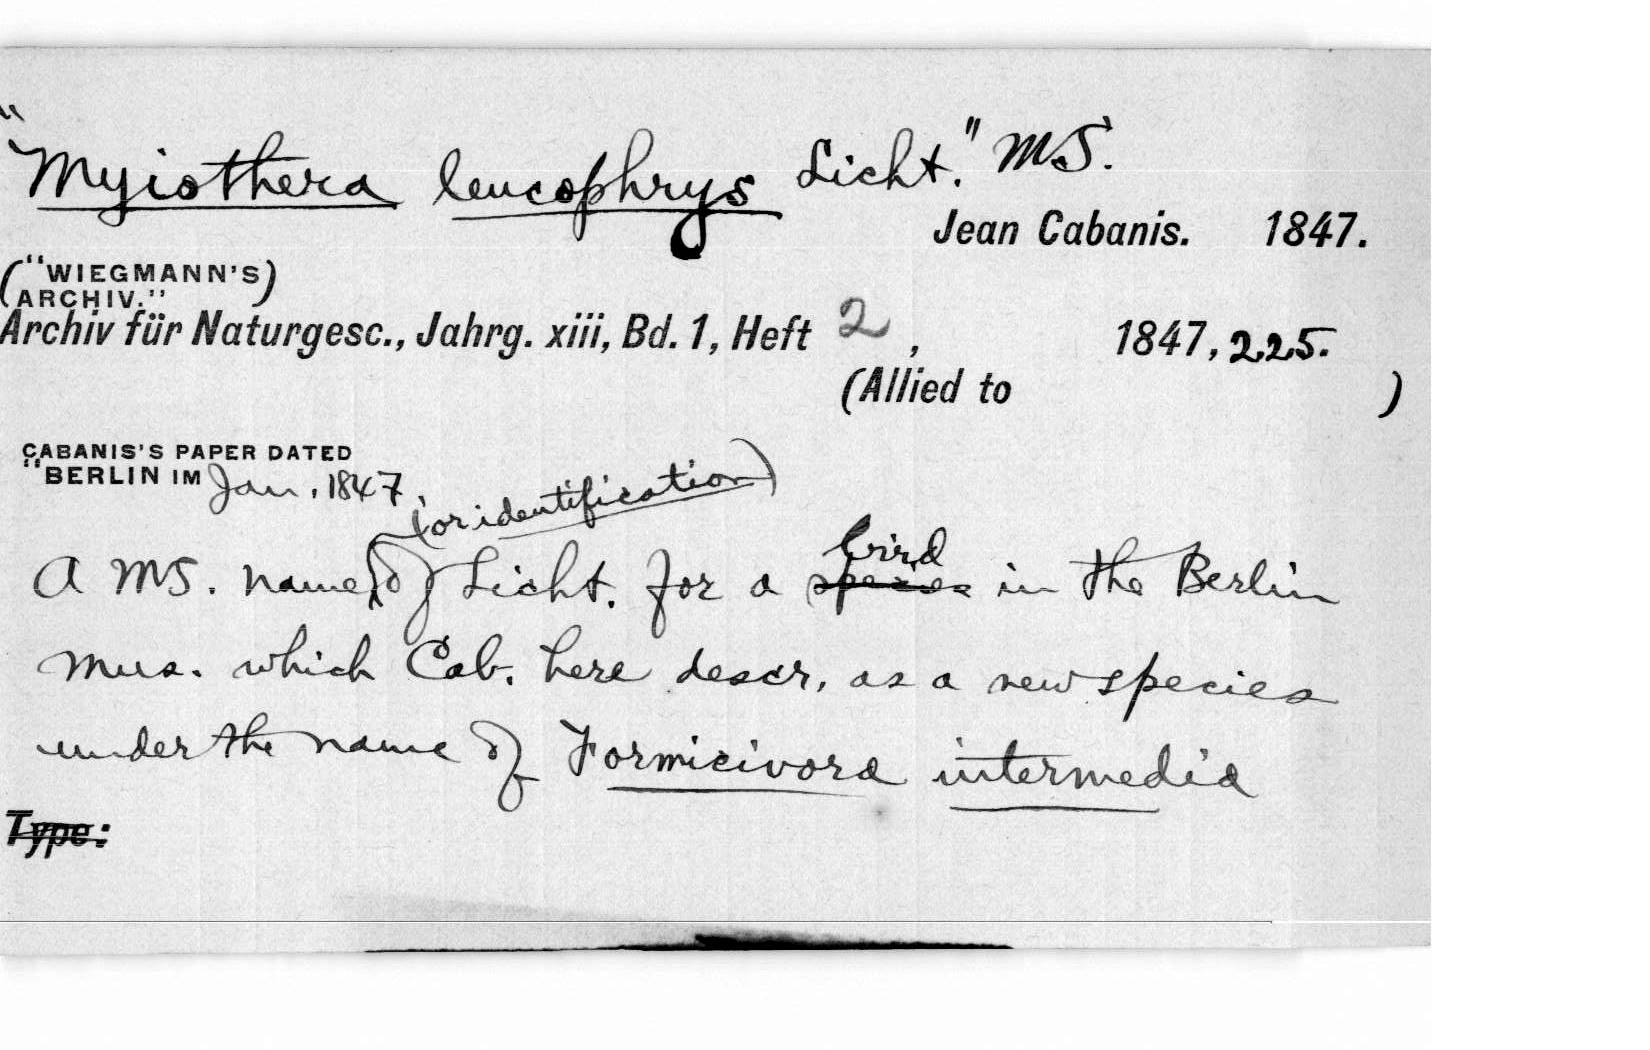 "Myiothera leucophrys Licht." MS.
Jean Cabanis. 1847.
("WIEGMANN'S)
(ARCHIV."
Archiv für Naturgesc., Jahrg. xiii, Bd. 1, Heft 2, 1847, 225.
(Allied to )
CABANIS'S PAPER DATED
"BERLIN IM Jan. 1847
(or identification)
A MS. name of Licht. for a species bird in the Berlin
Mus. which Cab. here descr. as a new species
under the name of Formicivora intermedia
Type: